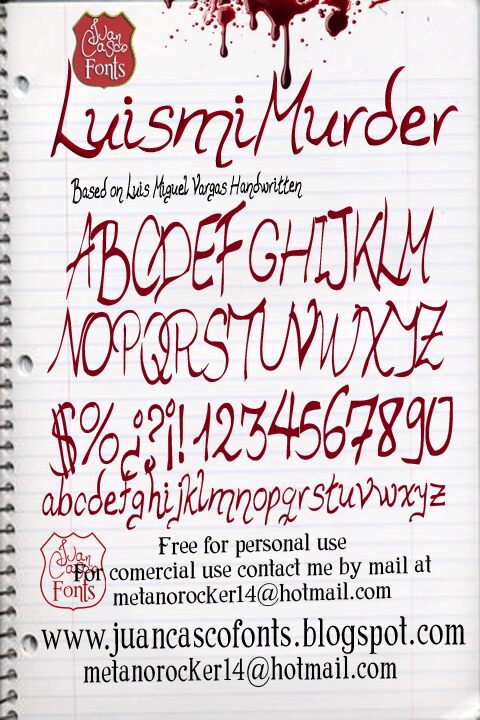 Juan
Casco
Fonts
Luismi Murder
Based on Luis Miguel Vargas Handwritten
ABCDEFGHIJKLM
NOPQRSTUVWXYZ
$%¿?¡!1234567890
abcdefghijklmnopqrstuvwxyz
Juan
Casco
Fonts
Free for personal use
For comercial use contact me by mail at
metanorocker14@hotmail.com
www.juancascofonts.blogspot.com
metanorocker14@hotmail.com